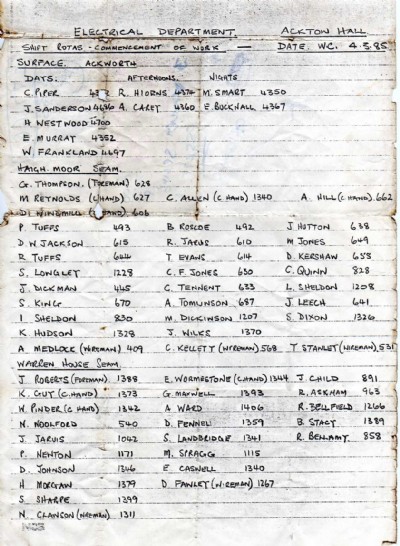 ELECTRICAL DEPARTMENT. ACKTON HALL
SHIFT ROTAS - COMMENCEMENT OF WORK — DATE. WC. 4.3.85
SURFACE. ACKWORTH
DAYS. AFTERNOONS. NIGHTS
C. PIPER R. HIORNS 4374 M. SMART 4350
J. SANDERSON 4636 A. CAREY 4360 E. BUCKHALL 4367
H WESTWOOD 4700
E. MURRAY 4352
W. FRANKLAND 4697
HAIGH MOOR SEAM.
G. THOMPSON. (FOREMAN) 628
M REYNOLDS (C/HAND) 627 C. ALLEN (C HAND) 1340 A. HILL (C HAND). 662
D. WINDMILL (C HAND) 606
P. TUFFS 493 B. ROSCOE 492 J HUTTON 638
D. W JACKSON 615 R. JARUS 610 M JONES 649
R. TUFFS 644 T. EVANS 614 D. KERSHAW 655
S. LONGLEY 1228 C. F. JONES 650 C. QUINN 828
J. DICKMAN 445 C. TENNENT 633 L. SHELDON 1208
S. KING 670 A. TOMUNSON 687 J. LEECH 641
I SHELDON 830 M. DICKINSON 1207 S. DIXON 1326
K HUDSON 1328 J. WILKS 1370
A MEDLOCK (WIREMAN) 409 C. KELLETT (WIREMAN) 568 T STANLEY (WIREMAN) 531
WARREN HOUSE SEAM.
J ROBERTS (FOREMAN) 1388 E. WORMESTONE (C/HAND) 1344 J. CHILD 891
K. GUY (C. HAND) 1373 G. MAXWELL 1393 R. ASKHAM 963
W. PINDER (C HAND) 1342 A WARD 1406 R. BELLFIELD 1266
N. NOOLFORD 540 D. FENNEL 1359 B. STACY 1389
J JARVIS 1042 S. LANDBRIDGE 1341 R. BELLAMY 858
P. NEWTON 1171 M. SPRAGG 1115
D. JOHNSON 1346 E CASWELL 1340
H MORGAN 1379 D. FAWLEY (WIREMAN) 1267
S SHARPE 1399
N. CLANSON (WIREMAN) 1311